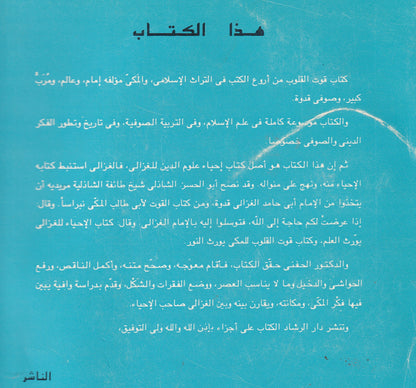 هذا الكتاب
كتاب قوت القلوب من أروع الكتب فى التراث الإسلامى، والمكّى مؤلفه إمام، وعالم، ومُرَبٍّ
كبير، وصوفى قدوة.
والكتاب موسوعة كاملة فى علم الإسلام، وفى التربية الصوفية، وفى تاريخ وتطور الفكر
الدينى والصوفى خصوصا.
ثم إن هذا الكتاب هو أصل كتاب إحياء علوم الدين للغزالى، فالغزالى استنبط كتابه
الإحياء منه، ونهج على منواله. وقد نصح أبو الحسن الشاذلى شيخ طائفة الشاذلية مريديه أن
يتخذوا من الإمام أبى حامد الغزالى قدوة، ومن كتاب القوت لأبى طالب المكّى نبراساً، وقال:
إذا عرضتْ لكم حاجة إلى اللّه، فتوسلوا إليه بالإمام الغزالى. وقال: كتاب الإحياء للغزالى
يورث العلم، وكتاب قوت القلوب للمكى يورث النور.
والدكتور الحفنى حقّق الكتاب، فأقام معوجّه، وصحّح متنه، وأكمل الناقص، ورفع
الحواشى والدخيل وما لا يناسب العصر، ووضع الفقرات والشكْل، وقدّم بدراسة وافية يبين
فيها فكْر المكّى، ومكانته، ويقارن بينه وبين الغزالى صاحب الإحياء.
وتنشر دار الرشاد الكتاب على أجزاء بإذن الله والله ولى التوفيق.
الناشر